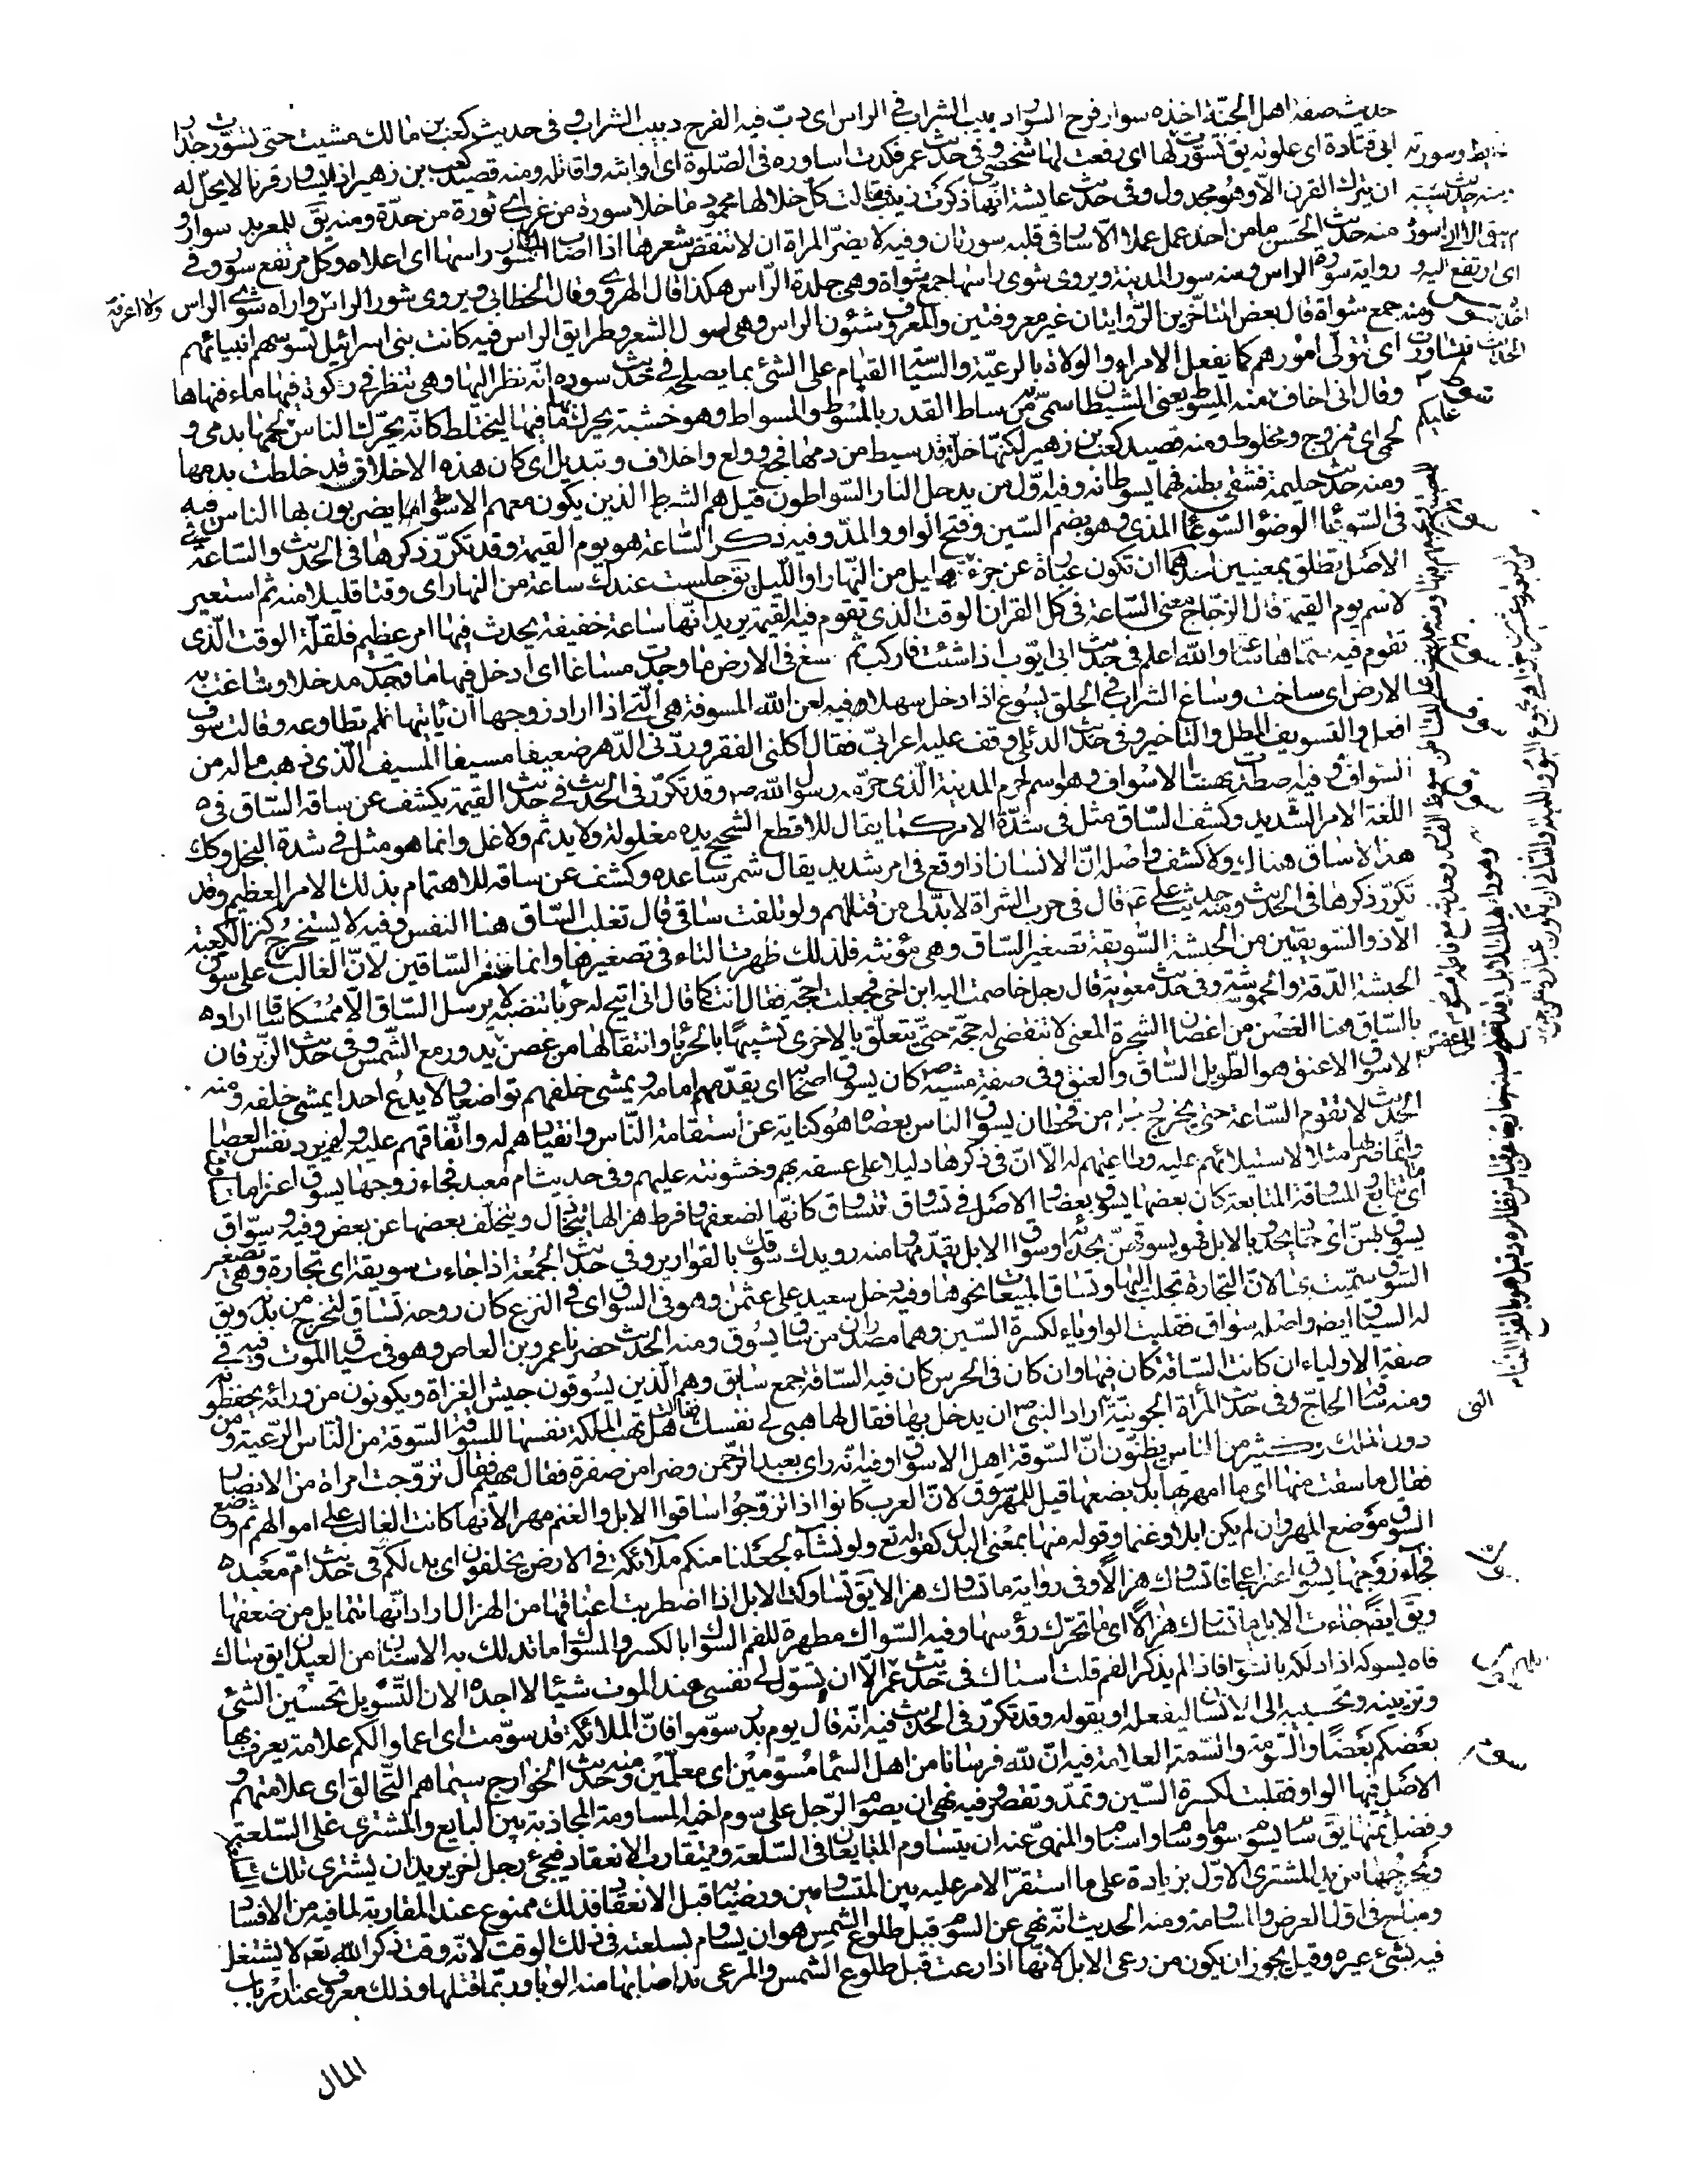 حديث صفة اهل الجنّة اخذه سوار فرح السوار دبيب الشراب في الراس اى دبّ فيه الفرح دبيب الشراب وفى حديث كعب بن مالك مشيت حتى تسوّرت جدار
ابى قتادة اى علوته يق تسوّرت لها اى رفعت لها شخصى وفى حديث عمر فكدت اساوره فى الصّلوة اى اواثبه واقاتله ومنه قصيد كعب بن زهير اذا يساور قرنا لا يحلّ له
ان يترك القرن الّا وهو مجدول وفى حديث عايشة انّها ذكرت زينب فقالت كلّ خلالها محمود ما خلا سورة من غرب اى ثورة من حدّة ومنه يق للمعربد سوار و
منه حديث الحسن ما من احد عمل عملا الّا سار فى قلبه سورتان وفيه لا يضرّ المراة ان لا تنقض شعرها اذا اصاب الماء سور راسها اى اعلاه وكل مرتفع سور وفى
رواية سورة الراس ومنه سور المدينة ويروى شوى راسها جمع شواة وهى جلدة الرّاس هكذا قال الهروى وقال الخطابى ويروى شور الراس واراه شوى الراس
جمع شواة قال بعض المتاخّرين الرّوايتان غير معروفتين والمعروف شئون الراس وهى اصول الشعر وطرايق الراس فيه كانت بنى اسرائيل تسوسهم انبيائهم
اى تتولّى امورهم كما يفعل الامراء والولاة بالرعيّة والسيّاسة القيام على الشئ بما يصلحه فى حديث سوده انّه نظر اليها وهى تنظر فى ركوة فيها ماء فنهاها
وقال انى اخاف عليكم منه المسوط يعنى الشيطان سمّى من ساط القدر بالمسوط والمسواط وهو خشبة يحرك بها ما فيها ليختلط كانّه يحرّك الناس لحمها بدمى و
لحمى اى ممزوج ومخلوط ومنه قصيد كعب بن زهير لكنّها خلّة قد سيط من دمها فجع وولع واخلاف وتبديل اى كان هذه الاخلاق قد خلطت بدمها
ومنه حديث حليمة فشقّا بطنه فهما يسوطانه وفيه اوّل من يدخل النار السّواطون قيل هم الشرط الذين يكون معهم الاسواط يضربون بها الناس فيه
فى السّوعاء الوضؤ السّوعاء المذى وهو بضم السّين وفتح الواو والمدّ وفيه ذكر السّاعة هو يوم القيمة وقد تكرّر ذكرها فى الحديث والسّاعة فى
الاصل تطلق بمعنيين احدهما ان تكون عبارة عن جزء قليل من النّهار او اللّيل يق جلست عندك ساعة من النهار اى وقتا قليلا منه ثم استعير
لاسم يوم القيمة قال الزجّاج معنى السّاعة فى كل القران الوقت الذى تقوم فيه القيمة يريد انّها ساعة خفيفة يحدث فيها امر عظيم فلقلّة الوقت الّذى
تقوم فيه سمّاها ساعة والله اعلم فى حديث ابى ايّوب اذا شئت فاركب ثم سغ فى الارض ما وجدت مساغا اى ادخل فيها ما وجدت مدخلا وساغت به
الارض اى ساخت وساغ الشراب فى الحلق يسوغ اذا دخل سهلا وفيه لعن الله المسوفة هى الّتى اذا اراد زوجها ان ياتيها لم تطاوعه وقالت سوف
افعل والتسويف المطل والتاخير وفى حديث الدئلى وقف عليه اعرابىّ فقال اكلنى الفقر وردّنى الدّهر ضعيفا مسيفا المسيف الّذى ذهب ماله من
السواف وفيه اصطدت نهسا بالاسواف وهو اسم لحرم المدينة الّذى حرّمه رسول الله ص وقد تكرّر فى الحديث فى حديث القيمة يكشف عن ساقه السّاق فى
اللّغة الامر الشّديد وكشف السّاق مثل فى شدّة الامر كما يقال للاقطع الشحيح يده مغلولة ولا يد ثم ولا غل وانما هو مثل فى شدة البخل وكك
هذا لا ساق هناك ولا كشف واصله انّ الانسان اذا وقع فى امر شديد يقال شمر ساعده وكشف عن ساقه للاهتمام بذلك الامر العظيم وقد
تكرّر ذكرها فى الحديث ومنه حديث على ع قال فى حرب الشراة لا بدّ لى من قتالهم ولو تلفت ساقى قال ثعلب السّاق هنا النفس وفيه لا يستخرج كنز الكعبة
الّا ذو السّويقتين من الحبشة السّويقة تصغير السّاق وهى مؤنثه فلذلك ظهرت التاء فى تصغيرها وانما صغر السّاقين لانّ الغالب على سوق
الحبشة الدّقة والحموشة وفى حديث معوية قال رجل خاصمت اليه ابن اخى فجعلت احجّه فقال انت كما قال انى اتيح له حرباء تنضبة لا يرسل السّاق الّا ممسكا ساقا اراد
بالسّاق هنا الغصن من اغصان الشجرة المعنى لا تنقضى له حجّة حتّى يتعلّق بالاخرى تشبيها بالحرباء وانتقالها من غصن الى غصن يدور مع الشّمس وفى حديث الزبرقان
الاسوق الاعنق هو الطّويل السّاق والعنق وفى صفة مشيه ص كان يسوق اصحابه اى يقدّمهم امامه ويمشى خلفهم تواضعا ولا يدع احدا يمشى خلفه ومنه
الحديث لا تقوم السّاعة حتى يخرج رجل من قحطان يسوق الناس بعصاه هو كناية عن استقامة النّاس وانقيادهم له واتّفاقهم عليه ولم يرد نفس العصا
وانّما ضربها مثلا لاستيلائهم عليه وطاعتهم له الّا انّ فى ذكرها دليلا على عسفه بهم وخشونته عليهم وفى حديث ام معبد فجاء زوجها يسوق اعنزا ما تساوق
اى تتابع والمساوقة المتابعة كان بعضها يسوق بعضا والاصل فى تساوق تتساوق كانّها لضعفها وفرط هزالها تتخاذل ويتخلّف بعضها عن بعض وفيه وسوّاق
يسوق بهنّ اى حاد يحدو بالابل فهو يسوقهنّ بحدائه وسوّاق الابل يقدّمها ومنه رويدك سوقك بالقوارير وفى حديث الجمعة اذا جاءت سويقة اى تجارة وهى تصغير
السّوق سمّيت بها لانّ التجارة تجلب اليها وتساق المبيعات نحوها وفيه دخل سعيد على عثمن وهو فى السّوق اى فى النزع كان روحه تساق لتخرج من بدنه ويق
له السياق ايضا واصله سواق فقلبت الواو ياء لكسرة السّين وهما مصدران من ساق يسوق ومنه الحديث حضرنا عمرو بن العاص وهو فى سياق الموت وفيه فى
صفة الاولياء ان كانت السّاقة كان فيها وان كان فى الحرس كان فيه السّاقة جمع سايق وهم الّذين يسوقون جيش الغزاة ويكونون من ورائه يحفظونه
ومنه ساقة الحاجّ وفى حديث المرأة الجونيّة الّتى اراد النبى ص ان يدخل بها فقال لها هبى لى نفسك فقالت هل تهب الملكة نفسها للسوقة السّوقة من النّاس الرّعيّة ومن
دون الملك وكثير من الناس يظنّون انّ السّوقة اهل الاسواق وفيه انّه راى بعبد الرّحمن وضرا من صفرة فقال مهيم فقال تزوّجت امراة من الانصار
فقال ما سقت منها اى ما امهرتها بدل بضعها قيل للمهر سوق لانّ العرب كانوا اذا تزوّجوا ساقوا الابل والغنم مهرا لانّها كانت الغالب على اموالهم ثم وضع
السوق موضع المهر وان لم يكن ابلا وغنما وقوله منها بمعنى البدل كقوله تع ولو نشاء لجعلنا منكم ملائكة فى الارض يخلفون اى بدلكم فى حديث امّ معبد
فجاء زوجها يسوق اعنزا عجافا تساوك هزالا وفى رواية ما تساوك هزالا يق تساوكت الابل اذا اضطربت اعناقها من الهزال اراد انّها تتمايل من ضعفها
ويق ايضا جاءت الابل ما تساوك هزالا اى ما تحرّك رؤسها وفيه السّواك مطهرة للفم السّواك بالكسر والمسواك ما تدلك به الاسنان من العيدان يق ساك
فاه يسوكه اذا دلكه بالسّواك فاذا لم يذكر الفم قلت استاك فى حديث عمر الّا ان تسوّل لى نفسى عند الموت شيئا لا اجده الان التّسويل تحسين الشئ
وتزيينه وتحبيبه الى الانسان ليفعله او يقوله وقد تكرّر فى الحديث فيه انّه قال يوم بدر سوّموا فانّ الملائكة قد سوّمت اى اعملوا لكم علامة يعرف بها
بعضكم بعضا والسّومة والسّمة العلامة فيه انّ لله فرسانا من اهل السّماء مسوّمين اى معلّمين ومنه حديث الخوارج سيماهم التّحالق اى علامتهم و
الاصل فيها الواو فقلبت لكسرة السّين وتمدّ وتقصر وفيه نهى ان يسوم الرّجل على سوم اخيه المساومة المجاذبة بين البايع والمشترى على السّلعة
وفصل ثمنها يق سام يسوم سوما وساوم واستام والمنهىّ عنه ان يتساوم المتبايعان فى السّلعة ويتقارب الانعقاد فيجئ رجل اخر يريد ان يشترى تلك السّلعة
ويخرجها من يد المشترى الاوّل بزيادة على ما استقرّ الامر عليه بين المتساومين ورضيا به قبل الانعقاد فذلك ممنوع عند المقاربة لما فيه من الافساد
ومباح فى اوّل العرض والمساومة ومنه الحديث انّه نهى عن السّوم قبل طلوع الشمس هو ان يساوم بسلعته فى ذلك الوقت لانّه وقت ذكر الله تعم لا يشتغل
فيه بشئ غيره وقيل يجوز ان يكون من رعى الابل لانّها اذا رعت قبل طلوع الشمس والمرعى ند اصابها منه الوباء وربّما قتلها وذلك معروف عند ارباب
المال